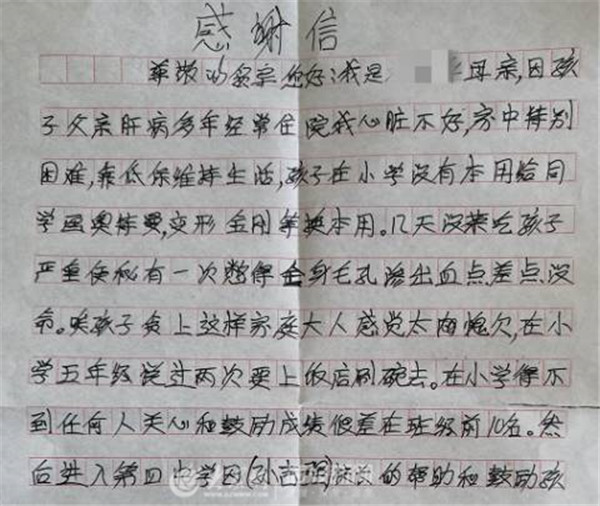 感谢信
尊敬的您好:我是母亲,因孩
子父亲肝病多年经常住院我心脏不好,家中特别
困难,靠低保维持生活,孩子在小学没有本用给同
学画奥特曼,变形金刚等换本用。几天没菜吃孩子
严重便秘有一次憋得全身毛孔渗出血点,差点没
命。唉孩子贪上这样家庭大人感觉太内愧欠,在小
学五年级说过两次要上饭店刷碗去。在小学得不
到任何人关心和鼓励成绩差在班级前10名。然
后进入第四中学因(孙吉强)的帮助和鼓励孩